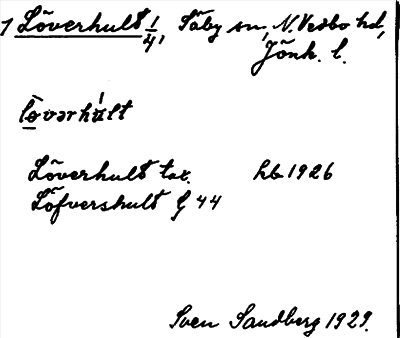 1 Löverhult 1/4, Säby sn, N. Vedbo hd,
Jönk. l.
lò̤vərhúlt
Löverhult tax. hb 1926
Löfvershult G 44
Sven Sandberg 1929.